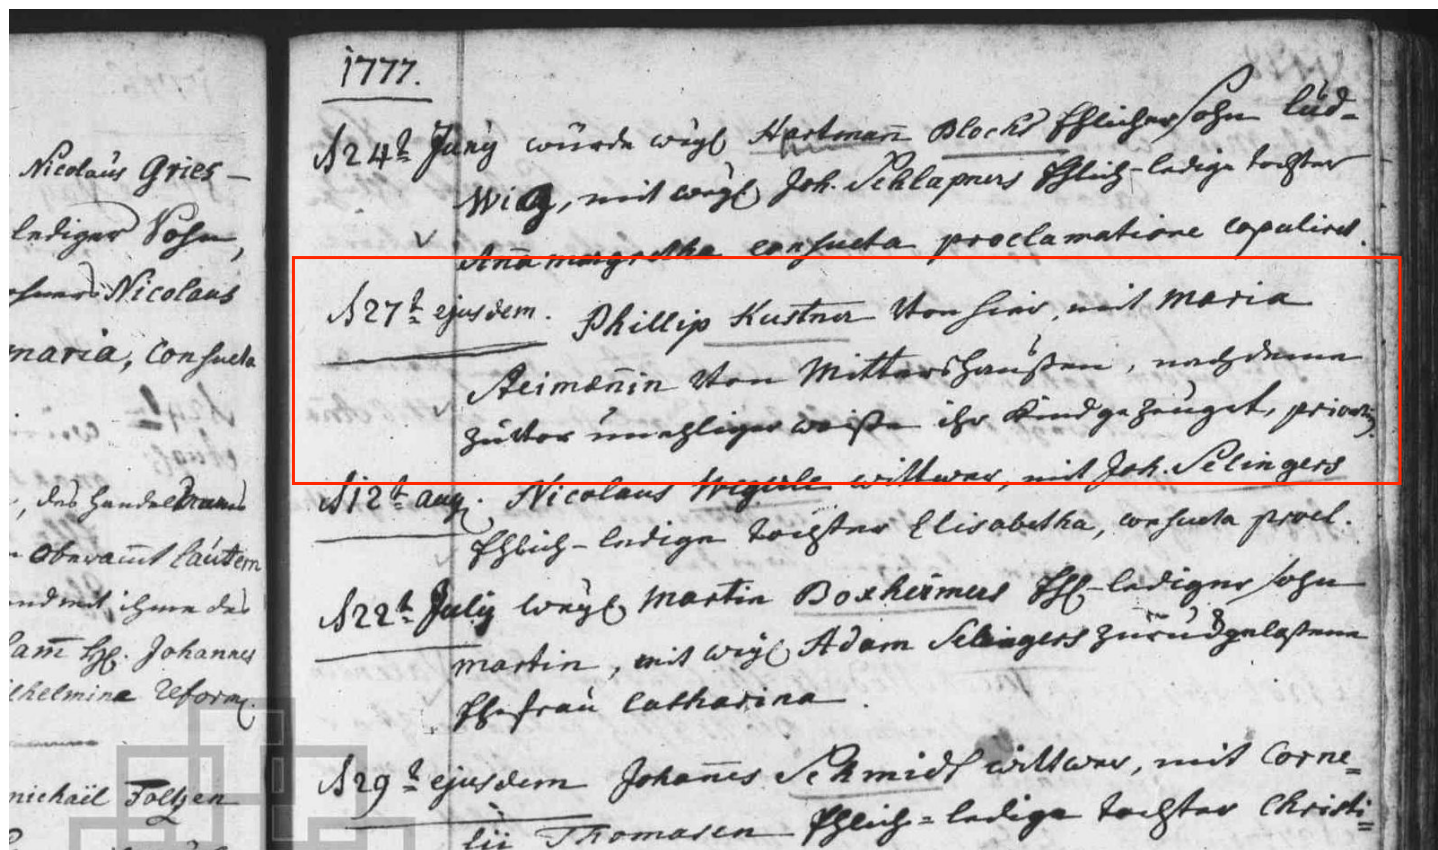 Nicolaus Gries-
lediger Sohn,
Nicolaus
maria, Consueta
, des handelsmanns
Oberamt lautern
und mit ihme des
Johannes
ilhelmina Reform.
michaël Foltzen
1777.
d 24t Juny wurde weyl Hartmann Blocks Ehlicher Sohn Lud-
wig, mit weyl Joh. Schlapners Ehlich-ledige tochter
Anna margretha consueta proclamatione copulirt.
d 27t ejusdem. Phillip Kustner von hier, mit Maria
Reimännin von Mittershaußen, nachdeme
zuvor unehliger weiße ihr Kind gezeuget, privatj
d 12t aug. Nicolaus Wegerle wittwer, mit Joh. Selingers
Ehlich-ledige tochter Elisabetha, consueta procl.
d 22t July weyl Martin Boxheimers Ehl-lediger sohn
martin, mit weyl Adam Selingers zurückgelaßene
Ehefrau Catharina.
d 29t ejusdem Johannes Schmidt wittwer, mit Corne=
lii Thomasen Ehlich=ledige tochter Christi=